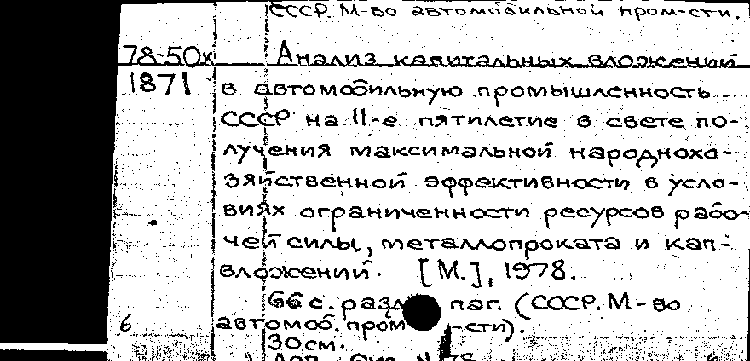 СССР. М-во автомобильной пром-сти.
78-50к Анализ капитальных вложений
1871 в автомобильную промышленность
СССР на 11-е пятилетие в свете по-
лучения максимальной народнохо-
зяйственной эффективности в усло-
виях ограниченности ресурсов рабо-
чей силы, металлопроката и кап-
вложений. [М.], 1978.
66 с. разд. паг. (СССР. М-во
6 автомоб. пром-сти).
30 см.